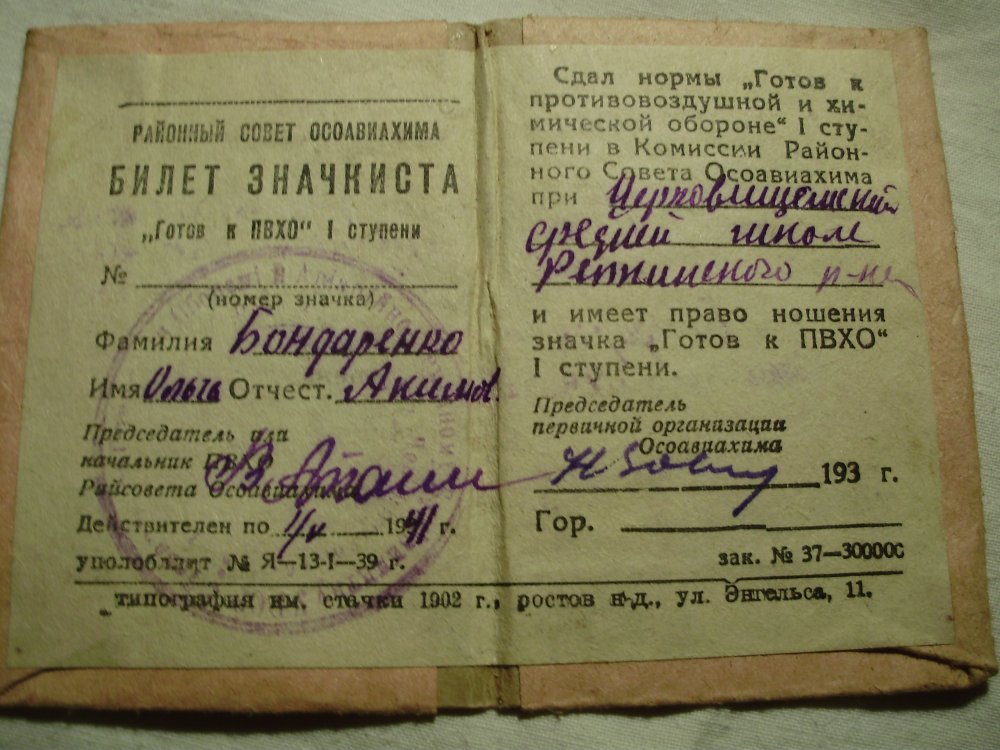 РАЙОННЫЙ СОВЕТ ОСОАВИАХИМА
БИЛЕТ ЗНАЧКИСТА
„Готов к ПВХО“ I ступени
№
(номер значка)
Фамилия Бондаренко
Имя Ольга Отчест. Акимов.
Председатель или
начальник ПВХО
Райсовета Осоавиахима
Действителен по 1941 г.
уполобллит № Я—13-I—39 г.
Сдал нормы „Готов к
противовоздушной и хи-
мической обороне“ I сту-
пени в Комиссии Район-
ного Совета Осоавиахима
при
средней школе
р-на
и имеет право ношения
значка „Готов к ПВХО“
I ступени.
Председатель
первичной организации
Осоавиахима
193 г.
Гор.
зак. № 37—30000С
типография им. стачки 1902 г., ростов н-д., ул. Энгельса, 11.